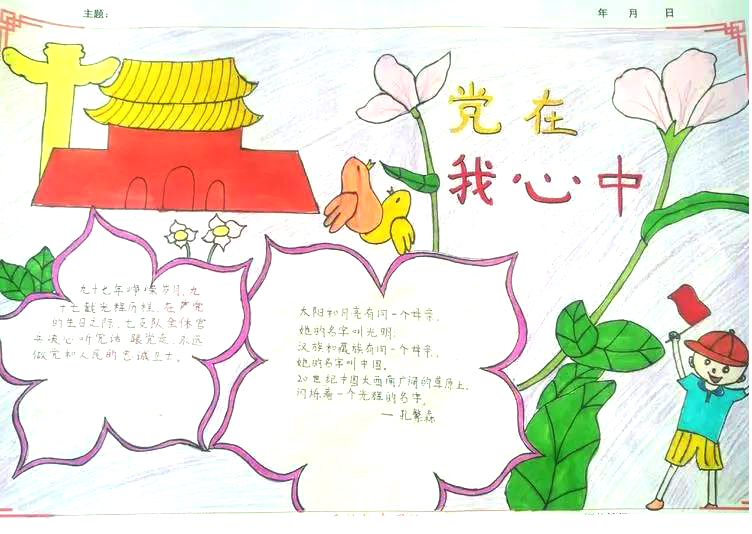 主题:
年 月 日
党在
我心中
九十七年峥嵘岁月,九
十七载光辉历程,在
的生日之际,七支队全体官
兵决心听党话 跟党走,永远
做党和人民的忠诚卫士。
太阳和月亮有同一个母亲,
她的名字叫光明;
汉族和藏族有同一个母亲,
她的名字叫中国。
20世纪中国大西南广阔的草原上,
闪烁着一个光辉的名字,
— 孔繁森